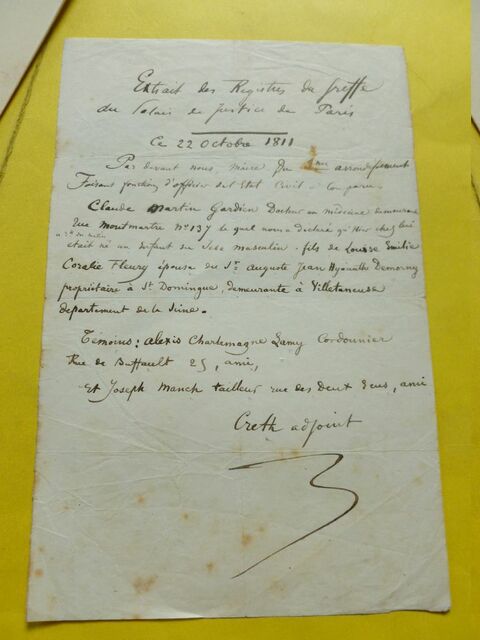 Extrait des Registres du Greffe
du Palais de Justice de Paris
Ce 22 Octobre 1811
Par devant nous maire du arrondissement
Faisant fonction d'officier del Etat Civil a Comparu
Claude Martin Gardien Docteur en médecine demeurant
Rue Montmartre N° 137 le quel nous a déclaré qu'hier chez lui
à du matin
était né un enfant du sexe masculin, fils de Louise Emilie
Coralie Fleury épouse du Sr. auguste Jean Hyacinthe Demorny
propriétaire à St. Domingue, demeurante à Villetaneuse
departement de la Seine.
Témoins: alexis Charlemagne Lamy Cordonnier
Rue de Buffault 25, ami,
Et Joseph Manch tailleur rue des deux Ecus, ami
Creth adjoint